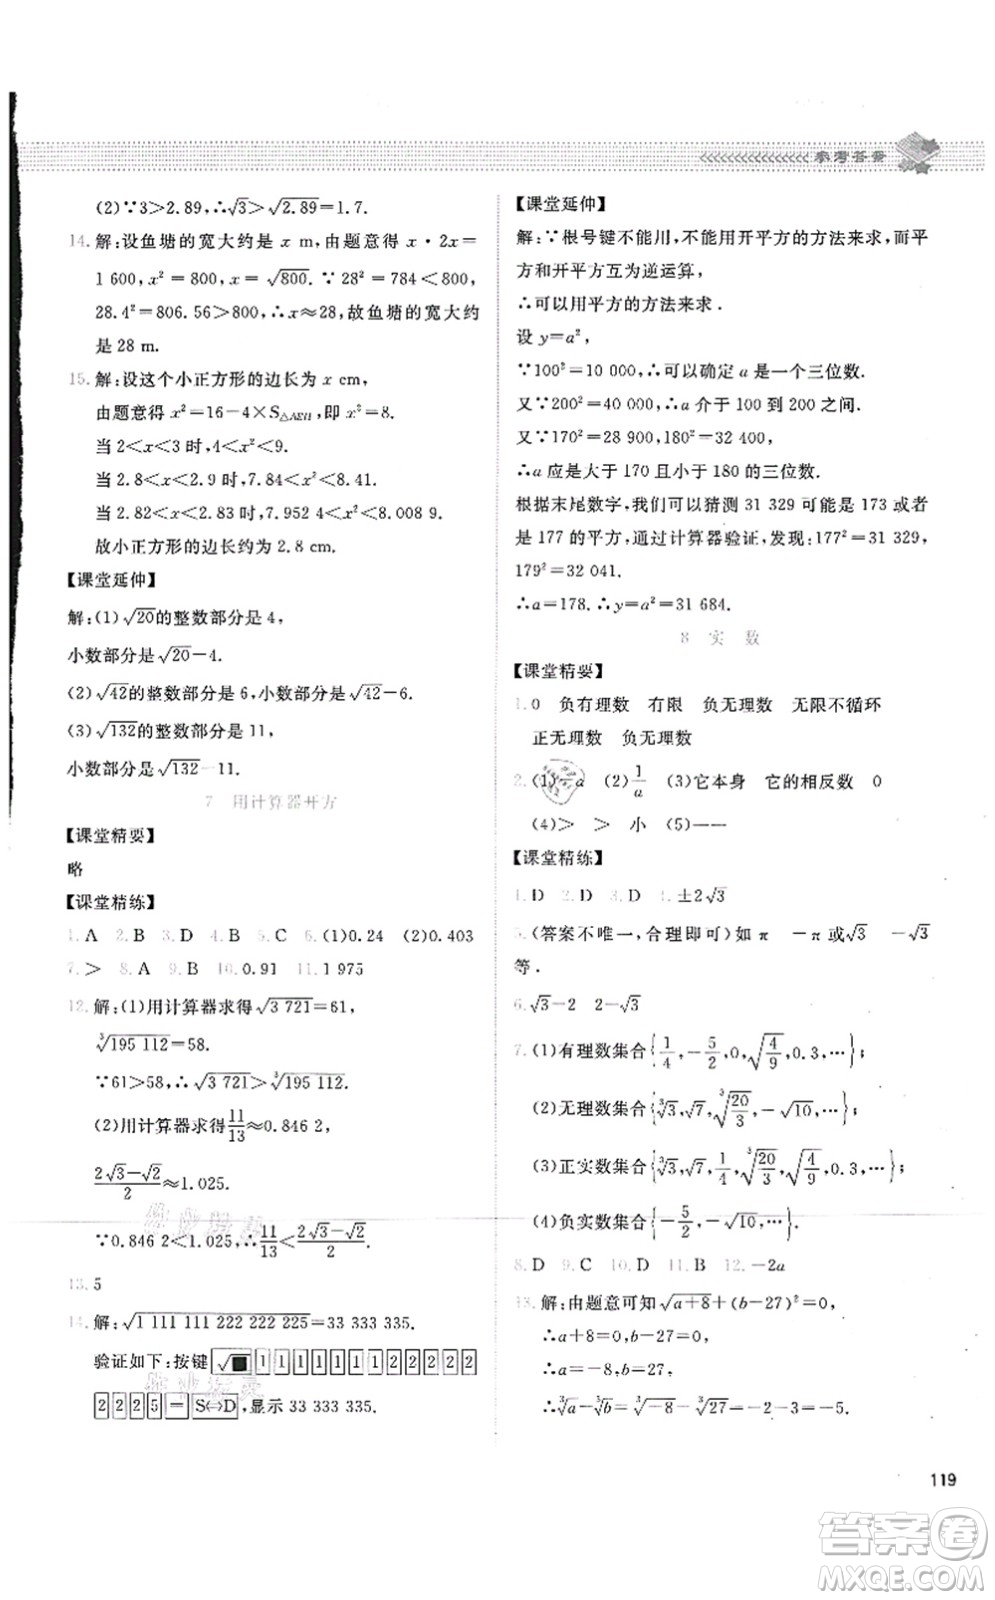 参考答案
(2)∵3＞2.89,∴√3＞√2.89=1.7.
14.解:设鱼塘的宽大约是 x m,由题意得 x·2x=
1 600,x²=800,x=√800.∵28²=784＜800,
28.4²=806.56＞800,∴x≈28,故鱼塘的宽大约
是 28 m.
15.解:设这个小正方形的边长为 x cm,
由题意得 x²=16-4×S△AEH,即 x²=8.
当 2＜x＜3 时,4＜x²＜9.
当 2.8＜x＜2.9 时,7.84＜x²＜8.41.
当 2.82＜x＜2.83 时,7.952 4＜x²＜8.008 9.
故小正方形的边长约为 2.8 cm.
【课堂延伸】
解:(1)√20的整数部分是 4,
小数部分是√20-4.
(2)√42的整数部分是 6,小数部分是√42-6.
(3)√132的整数部分是 11,
小数部分是√132-11.
7 用计算器开方
【课堂精要】
略
【课堂精练】
1.A 2.B 3.D 4.B 5.C 6.(1)0.24 (2)0.403
7.＞ 8.A 9.B 10.0.91 11.1 975
12.解:(1)用计算器求得√3 721=61,
∛195 112=58.
∵61＞58,∴√3 721＞∛195 112.
(2)用计算器求得11/13≈0.846 2,
(2√3-√2)/2≈1.025.
∵0.846 2＜1.025,∴11/13＜(2√3-√2)/2.
13.5
14.解:√1 111 111 222 222 225=33 333 335.
验证如下:按键√■ 1 1 1 1 1 1 1 2 2 2 2 2
2 2 2 5 = S⇔D,显示 33 333 335.
【课堂延伸】
解:∵根号键不能用,不能用开平方的方法来求,而平
方和开平方互为逆运算,
∴可以用平方的方法来求.
设 y=a²,
∵100²=10 000,∴可以确定 a 是一个三位数.
又∵200²=40 000,∴a 介于 100 到 200 之间.
又∵170²=28 900,180²=32 400,
∴a 应是大于 170 且小于 180 的三位数.
根据末尾数字,我们可以猜测 31 329 可能是 173 或者
是 177 的平方,通过计算器验证,发现:177²=31 329,
179²=32 041.
∴a=178.∴y=a²=31 684.
8 实 数
【课堂精要】
1.0 负有理数 有限 负无理数 无限不循环
正无理数 负无理数
2.(1)-a (2)1/a (3)它本身 它的相反数 0
(4)＞ ＞ 小 (5)一一
【课堂精练】
1.D 2.D 3.D 4.±2√3
5.(答案不唯一,合理即可)如 π -π或√3 -√3
等.
6.√3-2 2-√3
7.(1)有理数集合{1/4,-5/2,0,√(4/9),0.3,…};
(2)无理数集合{∛3,√7,∛(20/3),-√10,…};
(3)正实数集合{∛3,√7,1/4,∛(20/3),√(4/9),0.3,…};
(4)负实数集合{-5/2,-√10,…}.
8.D 9.C 10.D 11.B 12.-2a
13.解:由题意可知√(a+8)+(b-27)²=0,
∴a+8=0,b-27=0,
∴a=-8,b=27,
∴∛a-∛b=∛-8-∛27=-2-3=-5.
119
答案卷
MXQE.COM